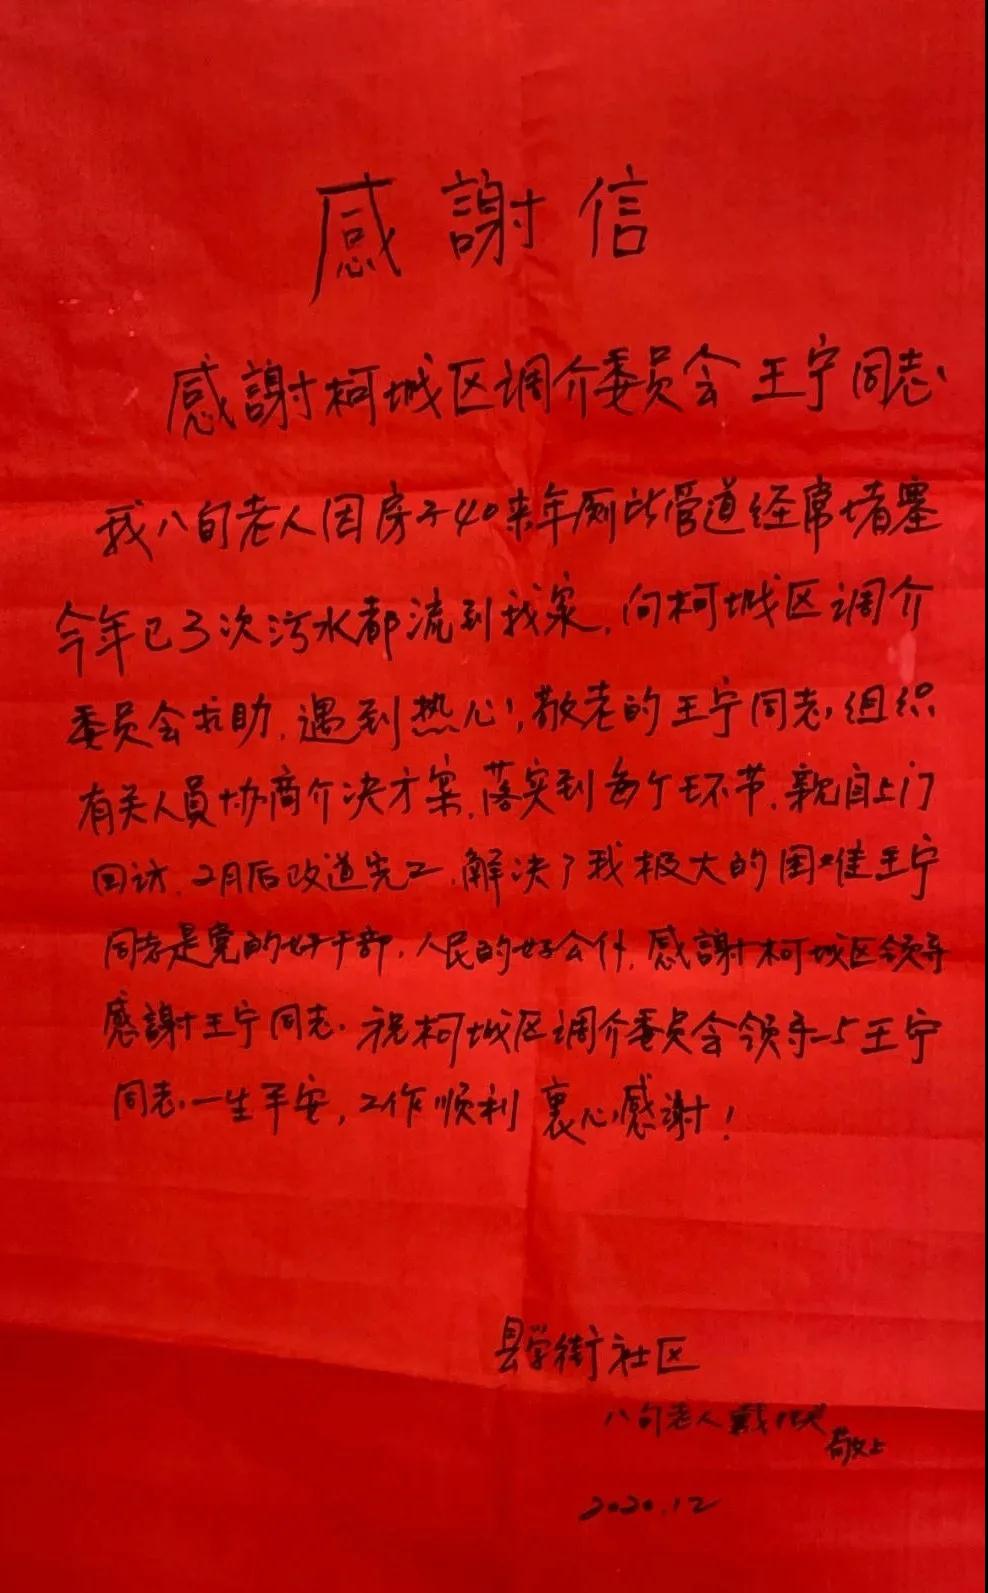 感謝信
感謝柯城区调介委员会王宁同志
我八旬老人因房子40来年厕所管道经常堵塞
今年已3次污水都流到我家，向柯城区调介
委员会求助，遇到热心，敬老的王宁同志，组织
有关人员协商介决方案，落实到每个环节，亲自上门
回访，2月后改道完工，解决了我极大的困难王宁
同志是党的好干部，人民的好公仆，感謝柯城区领导
感謝王宁同志，祝柯城区调介委员会领导与王宁
同志一生平安，工作顺利 衷心感谢！
县学街社区
八旬老人戴
敬上
2020.12